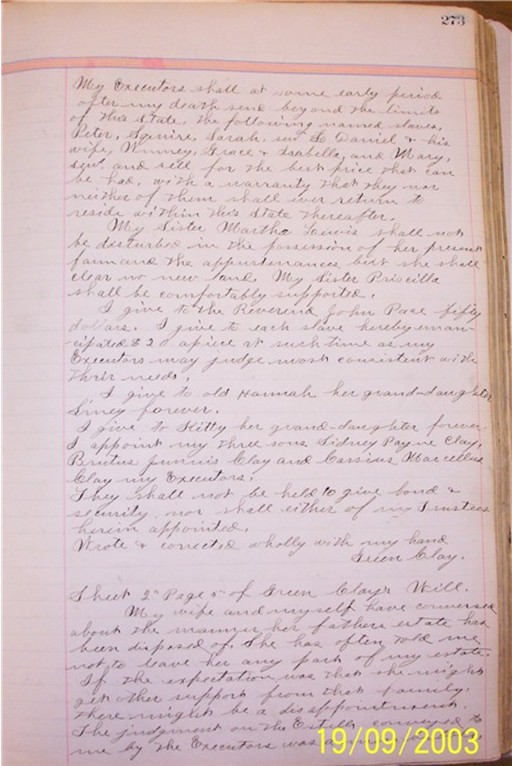 273
My Executors shall at some early period
after my death send beyond the limits
of this State, the following named slaves,
Peter, Squire, Sarah, Daniel, & his
wife, Winney, Grace & Isabella, and Mary,
and sell for the best price that can
be had, with a warranty that they nor
neither of them shall ever return to
reside within this State thereafter.
My Sister Martha Lewis shall not
be disturbed in the possession of her present
farm and the appurtenances but she shall
clear no new land. My Sister Priscilla
shall be comfortably supported.
I give to the Reverend John Pace fifty
dollars. I give to each slave hereby eman-
cipated $20 apiece at such time as my
Executors may judge most consistent with
their needs.
I give to old Hannah her grand-daughter
forever.
I give to Kitty her grand-daughter forever
I appoint my three sons Sidney Payne Clay,
Brutus Junius Clay and Cassius Marcellus
Clay my Executors.
They shall not be held to give bond &
security, nor shall either of my Trustees
herein appointed.
Wrote & corrected wholly with my hand
Green Clay.
Sheet 2" Page 5" of Green Clay's Will.
My wife and myself have conversed
about the manner her fathers estate has
been disposed of. She has often told me
not to leave her any part of my estate.
If the expectation was that she might
get other support from that family,
there might be a disappointment.
The judgment on the Estill, conveyed to
me by the Executors was
19/09/2003